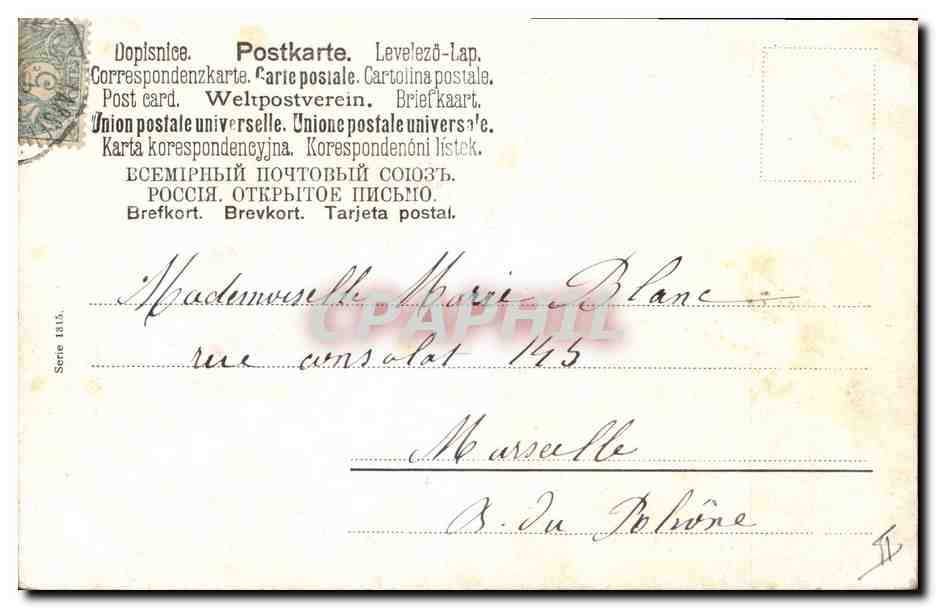 Dopisnice. Postkarte. Levelező-Lap.
Correspondenzkarte. Carte postale. Cartolina postale.
Post card. Weltpostverein. Briefkaart.
Union postale universelle. Unione postale universale.
Karta korespondencyjna. Korespondenčni listek.
ВСЕМІРНЫЙ ПОЧТОВЫЙ СОЮЗЪ.
РОССІЯ. ОТКРЫТОЕ ПИСЬМО.
Brefkort. Brevkort. Tarjeta postal.
Mademoiselle Marie Blanc
CPAPHIL
rue consolat 145
Marseille
B. du Rhône
Serie 1315.
5
II